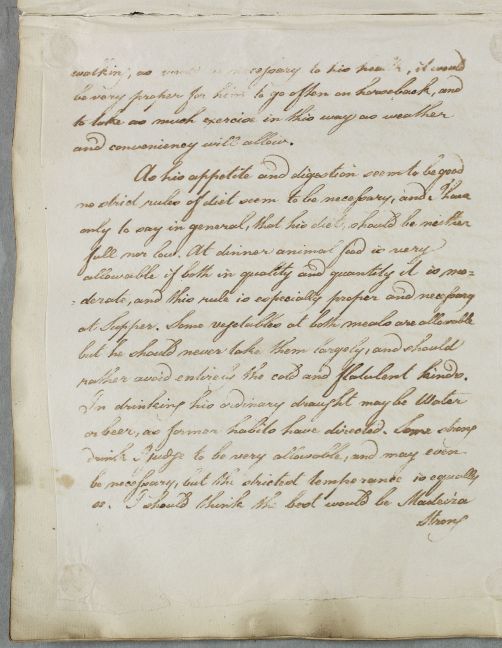 walking, as much is necessary to his health, it would
be very proper for him to go often on horseback, and
to take as much exercise in this way as weather
and conveniency will allow.
As his appetite and digestion seem to be good
no strict rules of diet seem to be necessary, and I have
only to say in general, that his diet, should be neither
full nor low. At dinner animal food is very
allowable if both in quality and quantity it is mo-
-derate, and this rule is especially proper and necessary
at Supper. Some vegetables at both meals are allowable
but he should never take them largely, and should
rather avoid entirely the cold and flatulent kinds.
In drinking his ordinary draught may be Water
or beer, as former habits have directed. Some strong
drink I judge to be very allowable, and may even
be necessary, but the strictest temperance is equally
so. I should think the best would be Madeira
Strong